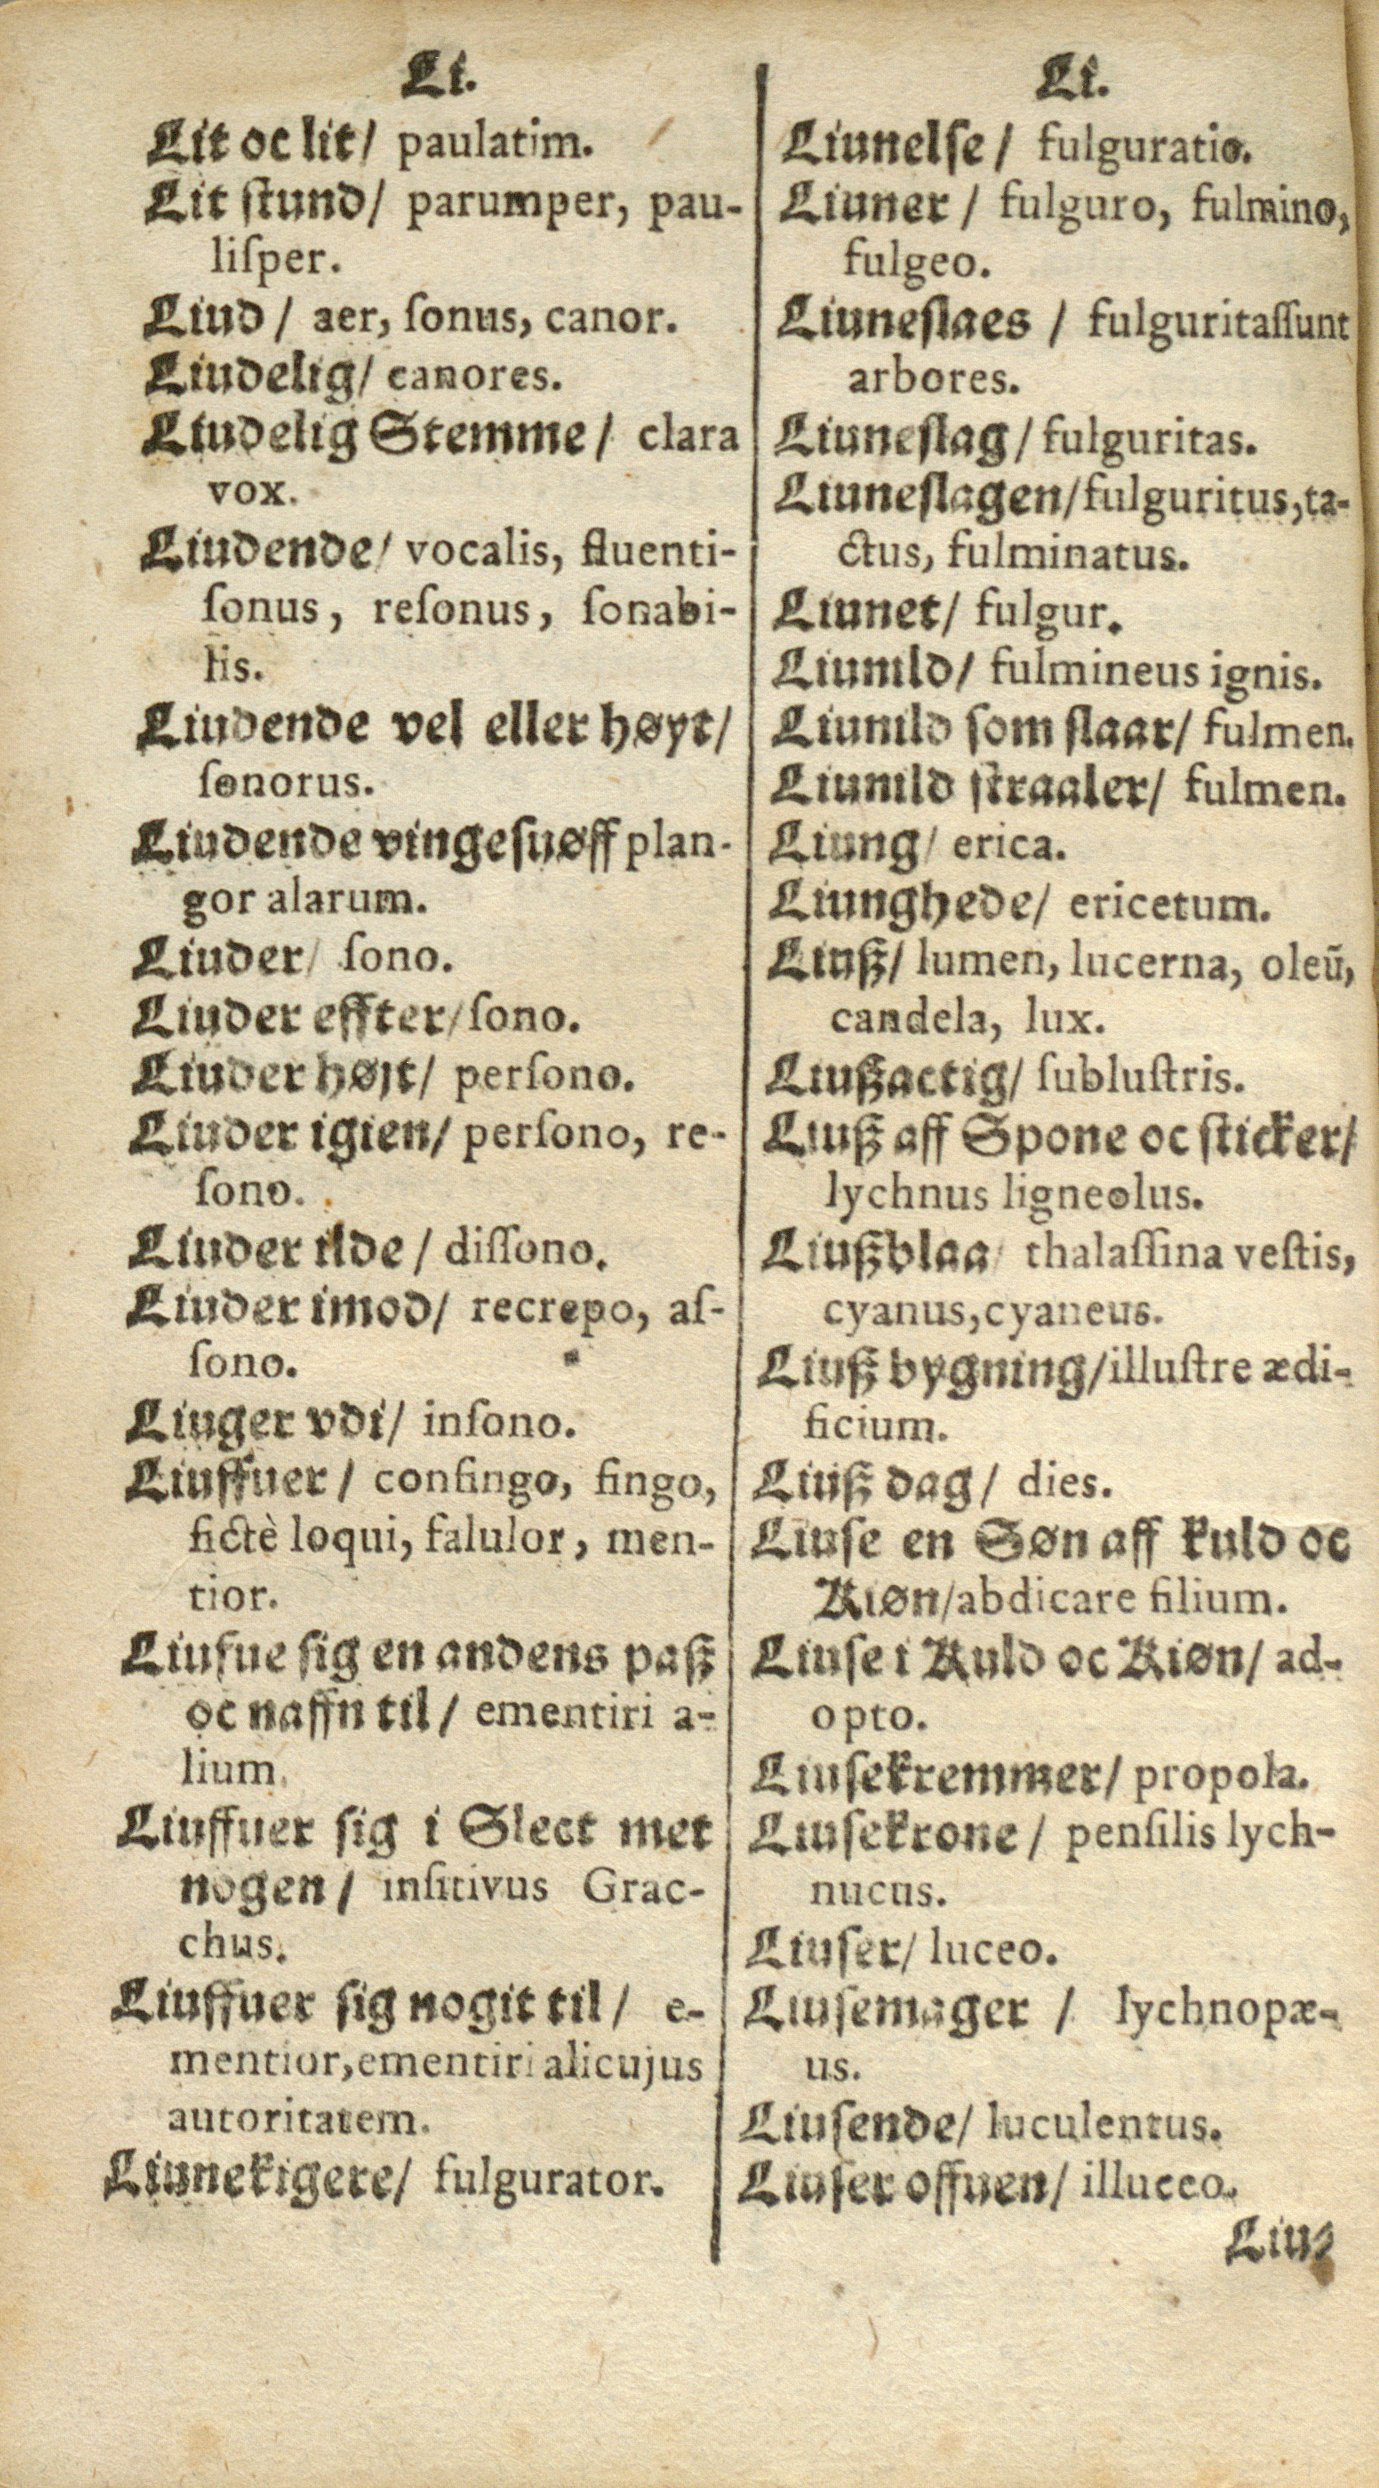 Li.
Lit oc lit/ paulatim.
Lit ſtund/ parumper, pau-
liſper.
Liud/ aer, ſonus, canor.
Liudelig/ canores.
Liudelig Stemme/ clara
vox.
Liudende/ vocalis, fluenti-
ſonus, reſonus, ſonabi-
lis.
Liudende vel eller høyt/
ſonorus.
Liudende vingeſuøff plan-
gor alarum.
Liuder/ ſono.
Liuder effter/ ſono.
Liuder højt/ perſono.
Liuder igien/ perſono, re-
ſono.
Liuder ilde/ diſſono.
Liuder imod/ recrepo, aſ-
ſono.
Liuger vdi/ inſono.
Liuffuer/ confingo, fingo,
fictè loqui, falulor, men-
tior.
Liufue ſig en andens paß
oc naffn til/ ementiri a-
lium.
Liuffuer ſig i Slect met
nogen/ inſitivus Grac-
chus.
Liuffuer ſig nogit til/ e-
mentior, ementiri alicujus
autoritatem.
Liunekigere/ fulgurator.
Li.
Liunelſe/ fulguratio.
Liuner/ fulguro, fulmino,
fulgeo.
Liuneſlaes/ fulguritaſſunt
arbores.
Liuneſlag/ fulguritas.
Liuneſlagen/ fulguritus, ta-
ctus, fulminatus.
Liunet/ fulgur.
Liunild/ fulmineus ignis.
Liunild ſom ſlaar/ fulmen.
Liunild ſtraaler/ fulmen.
Liung/ erica.
Liunghede/ ericetum.
Liuß/ lumen, lucerna, oleũ,
candela, lux.
Liußactig/ ſubluſtris.
Liuß aff Spone oc ſticker/
lychnus ligneolus.
Liußblaa/ thalaſſina veſtis,
cyanus, cyaneus.
Liuß bygning/ illuſtre ædi-
ficium.
Liuß dag/ dies.
Liuſe en Søn aff kuld oc
Kiøn/ abdicare filium.
Liuſe i Kuld oc Kiøn/ ad-
opto.
Liuſekremmer/ propola.
Liuſekrone/ penſilis lych-
nucus.
Liuſer/ luceo.
Liuſemager/ lychnopæ-
us.
Liuſende/ luculentus.
Liuſer offuen/ illuceo.
Lius